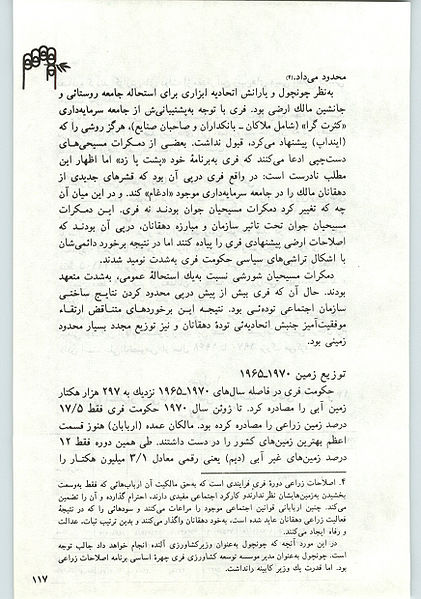 محدود می‌داد.(۴)
به‌نظر چونچول و یارانش اتحادیه ابزاری برای استحاله جامعه روستائی و
جانشین مالك ارضی بود. فری با توجه به‌پشتیبانی‌ش از جامعه سرمایه‌داری
«کثرت گرا» (شامل ملاکان ـ بانکداران و صاحبان صنایع)، هرگز روشی را که
(اینداپ) پیشنهاد می‌کرد، قبول نداشت. بعضی از دمـکرات مسیحی‌های
دست‌چپی ادعا می‌کنند که فری به‌برنامهٔ خود «پشت پا زد» اما اظهار این
مطلب نادرست است: در واقع فری درپی آن بود که قشرهای جدیدی از
دهقانان مالك را در جامعه سرمایه‌داری موجود «ادغام» کند. و در این میان آن
چه که تغییر کرد دمکرات مسیحیان جوان بودنـد نه فری. ایـن دمـکرات
مسیحیان جوان تحت تاثیر سازمان و مبارزه دهقانان، درپی آن بودنـد که
اصلاحات ارضی پیشنهادی فری را پیاده کنند اما در نتیجه برخورد دائمی‌شان
با اشکال تراشی‌های سیاسی حکومت فری به‌شدت نومید شدند.
دمکرات مسیحیان شورشی نسبت به‌یك استحالهٔ عمومی، به‌شدت متعهد
بودند. حال آن که فری بیش از پیش درپی محدود کردن نتایـج ساختـی
سازمان اجتماعی توده‌ئی بود. نتیجـه ایـن برخوردهـای متنـاقض ارتقـاء
موفقیت‌آمیز جنبش اتحادیه‌ئی تودهٔ دهقانان و نیز توزیع مجدد بسیار محدود
زمینی بود.
توزیع زمین ۱۹۷۰ـ۱۹۶۵
حکومت فری در فاصله سال‌های ۱۹۷۰ـ۱۹۶۵ نزدیك به ۲۹۷ هزار هکتار
زمین آبی را مصادره کرد. تا ژوئن سال ۱۹۷۰ حکومت فری فقط ۱۷/۵
درصد زمین زراعی را مصادره کرده بود. مالکان عمده (اربابان) هنوز قسمت
اعظم بهترین زمین‌های کشور را در دست داشتند. طی همین دوره فقط ۱۲
درصد زمین‌های غیر آبی (دیم) یعنی رقمی معادل ۳/۱ میلیون هکتـار را
۴. اصلاحات زراعی دورهٔ فری فرایندی است که به‌حق مالکیت آن ارباب‌هائی که فقط به‌وسعت
بخشیدن به‌زمین‌هایشان نظر ندارندو کارکرد اجتماعی مفیدی دارند، احترام گذارده و آن را تضمین
می‌کند. چنین اربابانی قوانین اجتماعی موجود را مراعات می‌کنند و سودهائی را که در نتیجهٔ
فعالیت زراعی دهقانان عاید شده است، به‌خود دهقانان واگذار می‌کنند و بدین ترتیب ثبات، عدالت
و رفاه ایجاد می‌کنند.
در این مورد آنچه که چونچول به‌عنوان وزیرکشاورزی آلنده انجام خواهد داد جالب توجه
است. چونچول به‌عنوان مدیر موسسه توسعه کشاورزی فری چهرهٔ اساسی برنامه اصلاحات زراعی
بود. اما قدرت یك وزیر کابینه رانداشت.
۱۱۷